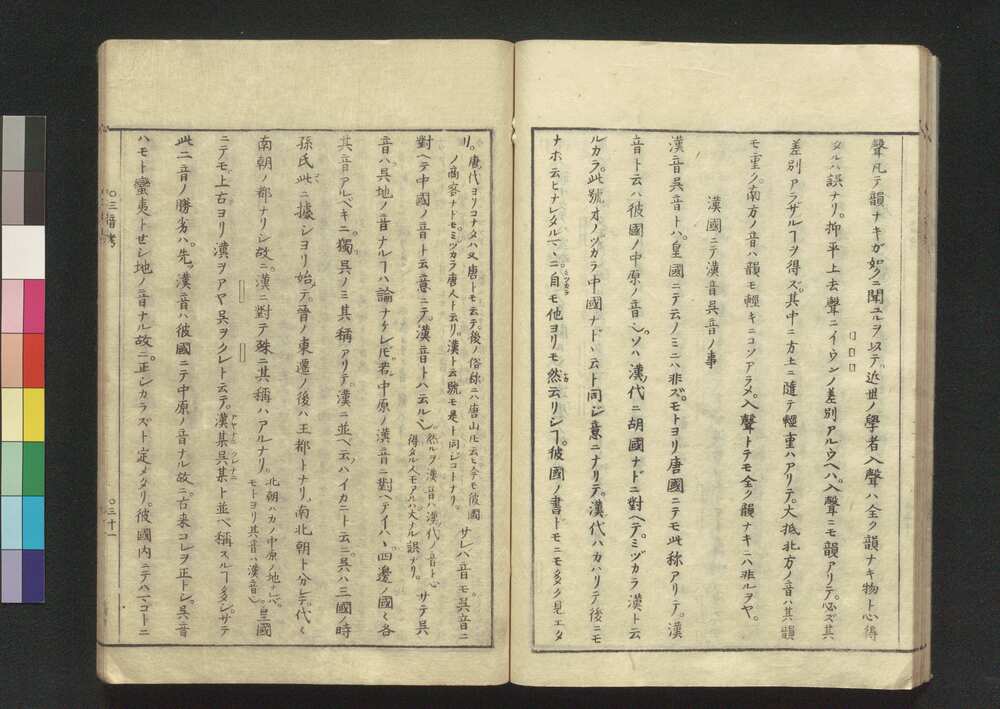 聲凡テ韻ナキガ如クニ聞ユルヲ以テ近世ノ學者入聲ハ全ク韻ナキ物ト心得
タルハ誤ナリ。抑平上去聲ニイウンノ差別アルウヘハ。入聲ニモ韻アリテ。必ズ其
差別アラザルヿヲ得ズ。其中ニ方土ニ隨テ輕重ハアリテ。大抵北方ノ音ハ其韻
モ重ク。南方ノ音ハ韻モ輕キニコソアラメ。入聲トテモ全ク韻ナキニハ非ルヲヤ。
漢國ニテ漢音吳音ノ事
漢音吳音トハ。皇國ニテ云ノミニハ非ズ。モトヨリ唐國ニテモ此称アリテ。漢
音ト云ハ彼國ノ中原ノ音也。ソハ漢代ニ胡國ナドニ對ヘテ。ミヅカラ漢ト云
ルカラ。此號オノヅカラ中國ナドヽ云ト同ジ意ニナリテ。漢代ハカハリテ後ニモ
ナホ云ヒナレタルマヽニ自モ他ヨリモ然云リシヿ。彼國ノ書ドモニモ多ク見エタ
リ。唐代ヨリコナタハ又唐トモ云テ。後ノ俗称ニハ唐山𪜈云ヒ。今モ彼國
ノ商客ナドモミヅカラ唐人ト云リ。漢ト云號モ是ト同ジコトナリ。
サレハ音モ吳音ニ
對ヘテ中國ノ音ト云意ニテ。漢音トハ云ルナレ
然ルヲ漢音ハ漢代ノ音ト心
得タル人モアルハ大ナル誤ナリ。
サテ吳
音ハ吳地ノ音ナルヿハ論ナケレ𪜈。若中原ノ漢音ニ對ヘテイハヽ。四邊ノ國々各
其音アルベキニ。獨吳ノミ其称アリテ。漢ニ並ベ云ハイカニト云ニ。吳ハ三國ノ時
孫氏此ニ據シヨリ始テ。晉ノ東遷ノ後ハ王都トナリ。南北朝ト分レテ。代々
南朝ノ都ナリシ故ニ。漢ニ對テ殊ニ其稱ハアルナリ。
北朝ハカノ中原ノ地ナレハ。
モトヨリ其音ハ漢音也。
皇國
ニテモ。上古ヨリ漢ヲアヤ吳ヲクレト云テ。漢某吳某ト並ベ稱スルヿ多シ。サテ
此二音ノ勝劣ハ。先ヅ漢音ハ彼國ニテ中原ノ音ナル故ニ。古來コレヲ正トシ。吳音
ハモト蠻夷トせシ地ノ音ナル故ニ。正シカラズト定メタリ。彼國内ニテハマコトニ
〇三音考
〇三十一